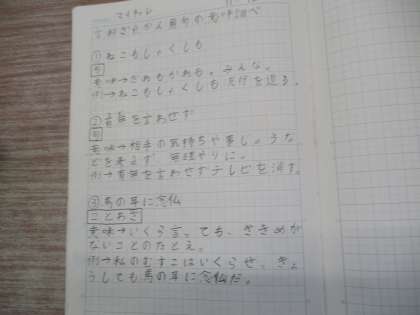 マイチャレ
言葉ざがかん用句の意味調べ
①ねこもしゃくしも
意味→だれもかれも。みんな。
例→ねこもしゃくしも を追う。
②有無を言わせず
意味→相手の気持ちや事し。うな
どを考えず 無理やりに。
例→有無を言わせずテレビを消す。
③馬の耳に念仏
ことわざ
意味→いくら言っても、ききめが
ないことのたとえ。
例→私のむすこはいくらせ、きょ
うしても馬の耳に念仏だ。